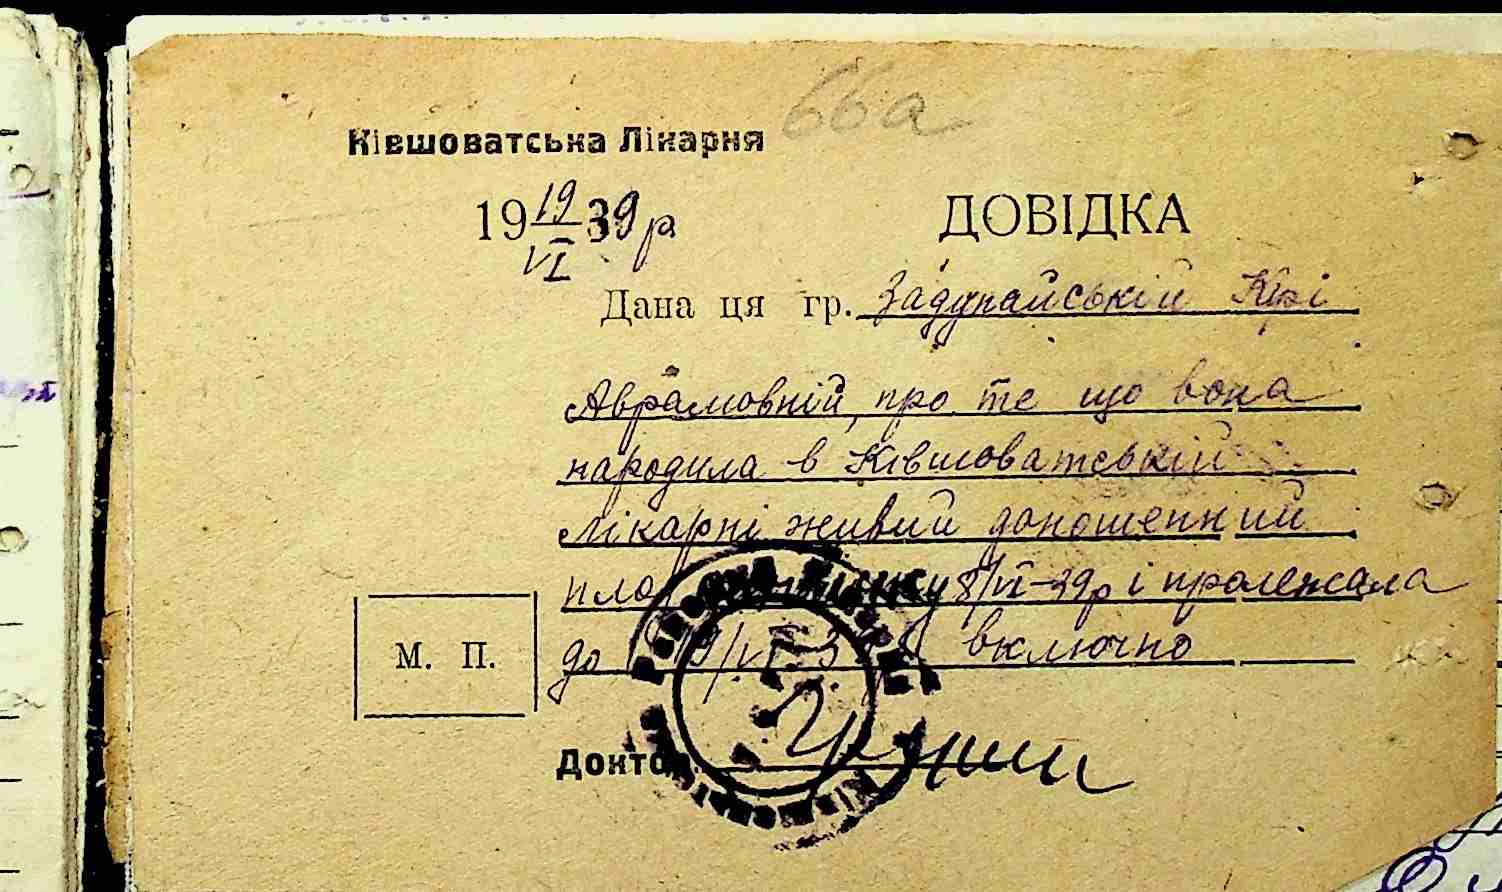 66а
Ківшоватська Лікарня
19 19/VI 39 р
ДОВІДКА
Дана ця гр. Задунайській Кірі
Аврамовній, про те що вона
народила в Ківшоватській
лікарні живий доношенний
плод 8/VI-39р і пролежала
до 19/VI-39 включно
М. П.
Доктор